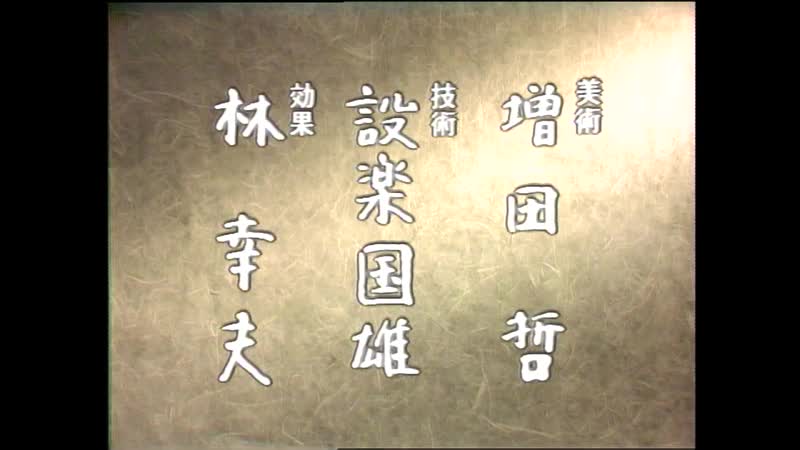 美術
増田哲
技術
設楽国雄
効果
林幸夫